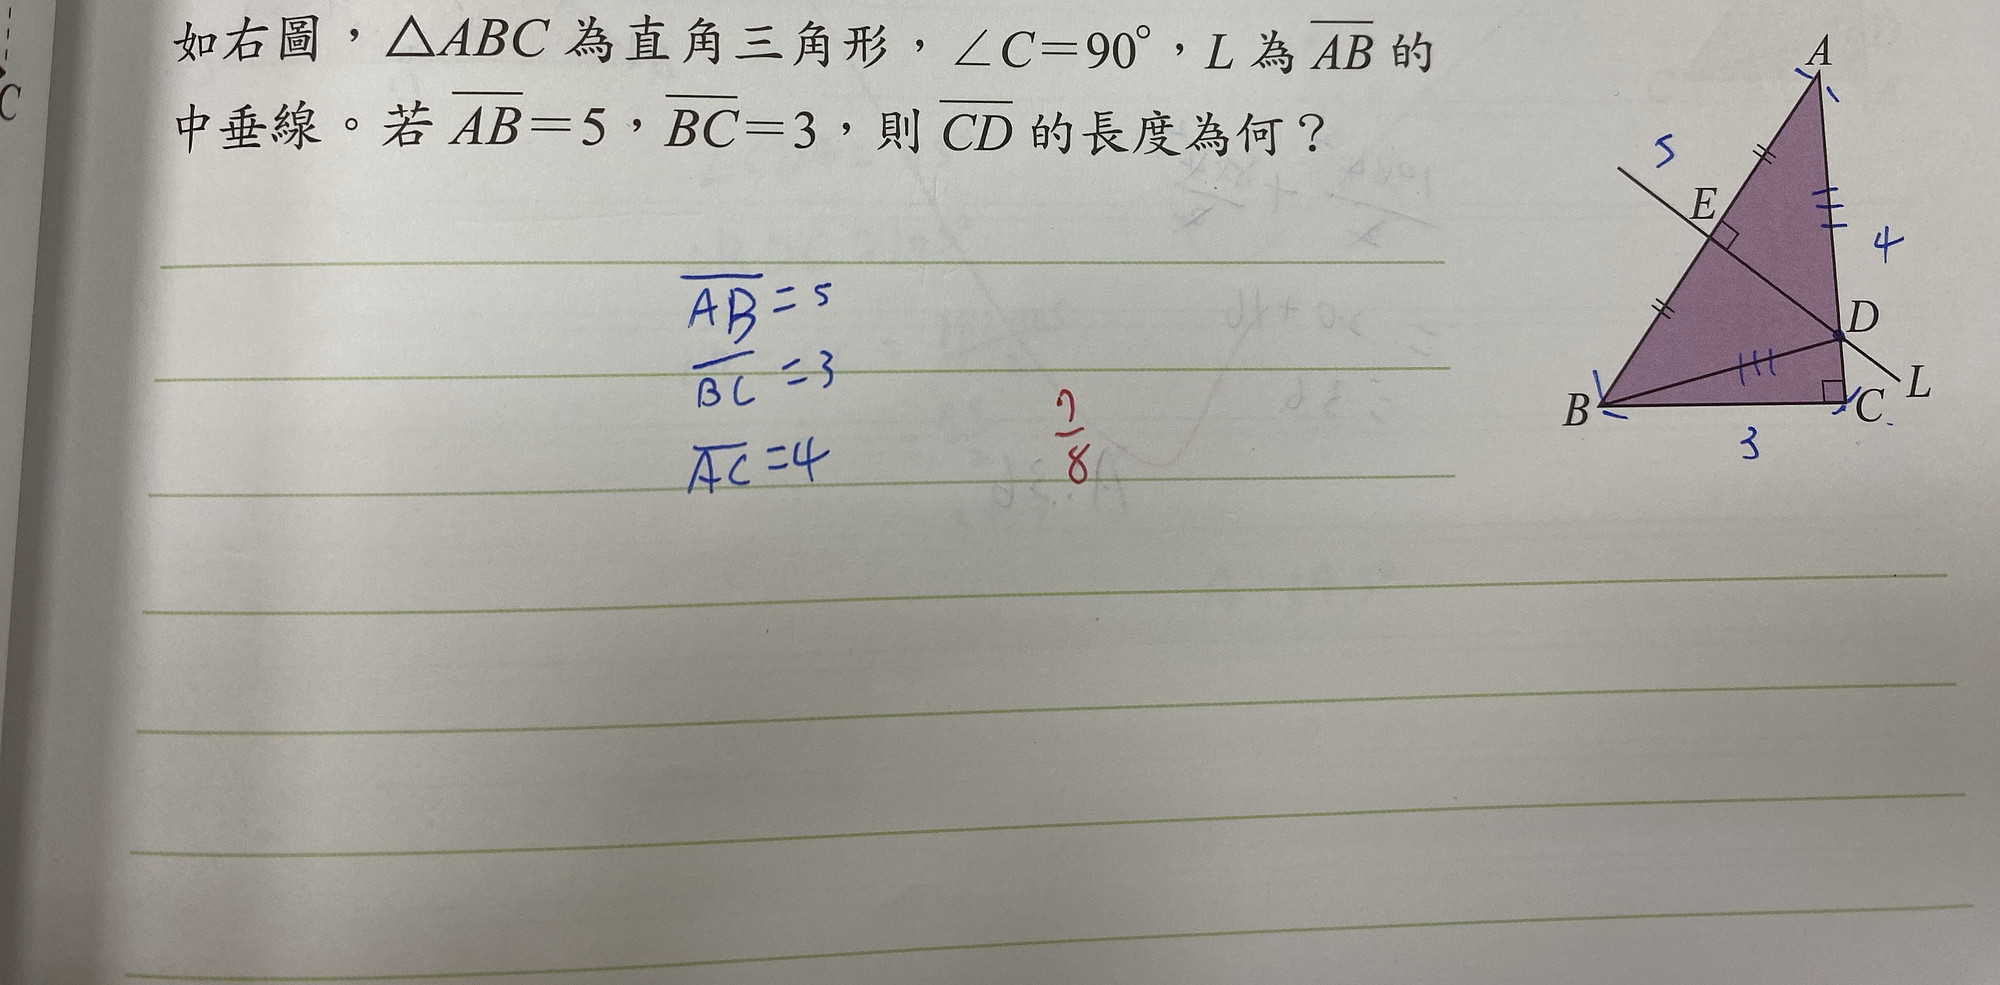 如右圖，△ABC 為直角三角形，∠C=90°，L 為 AB 的
中垂線。若 AB=5，BC=3，則 CD 的長度為何？
AB=5
BC=3
AC=4
7/8
A
5
E
4
D
L
B
C
3
C